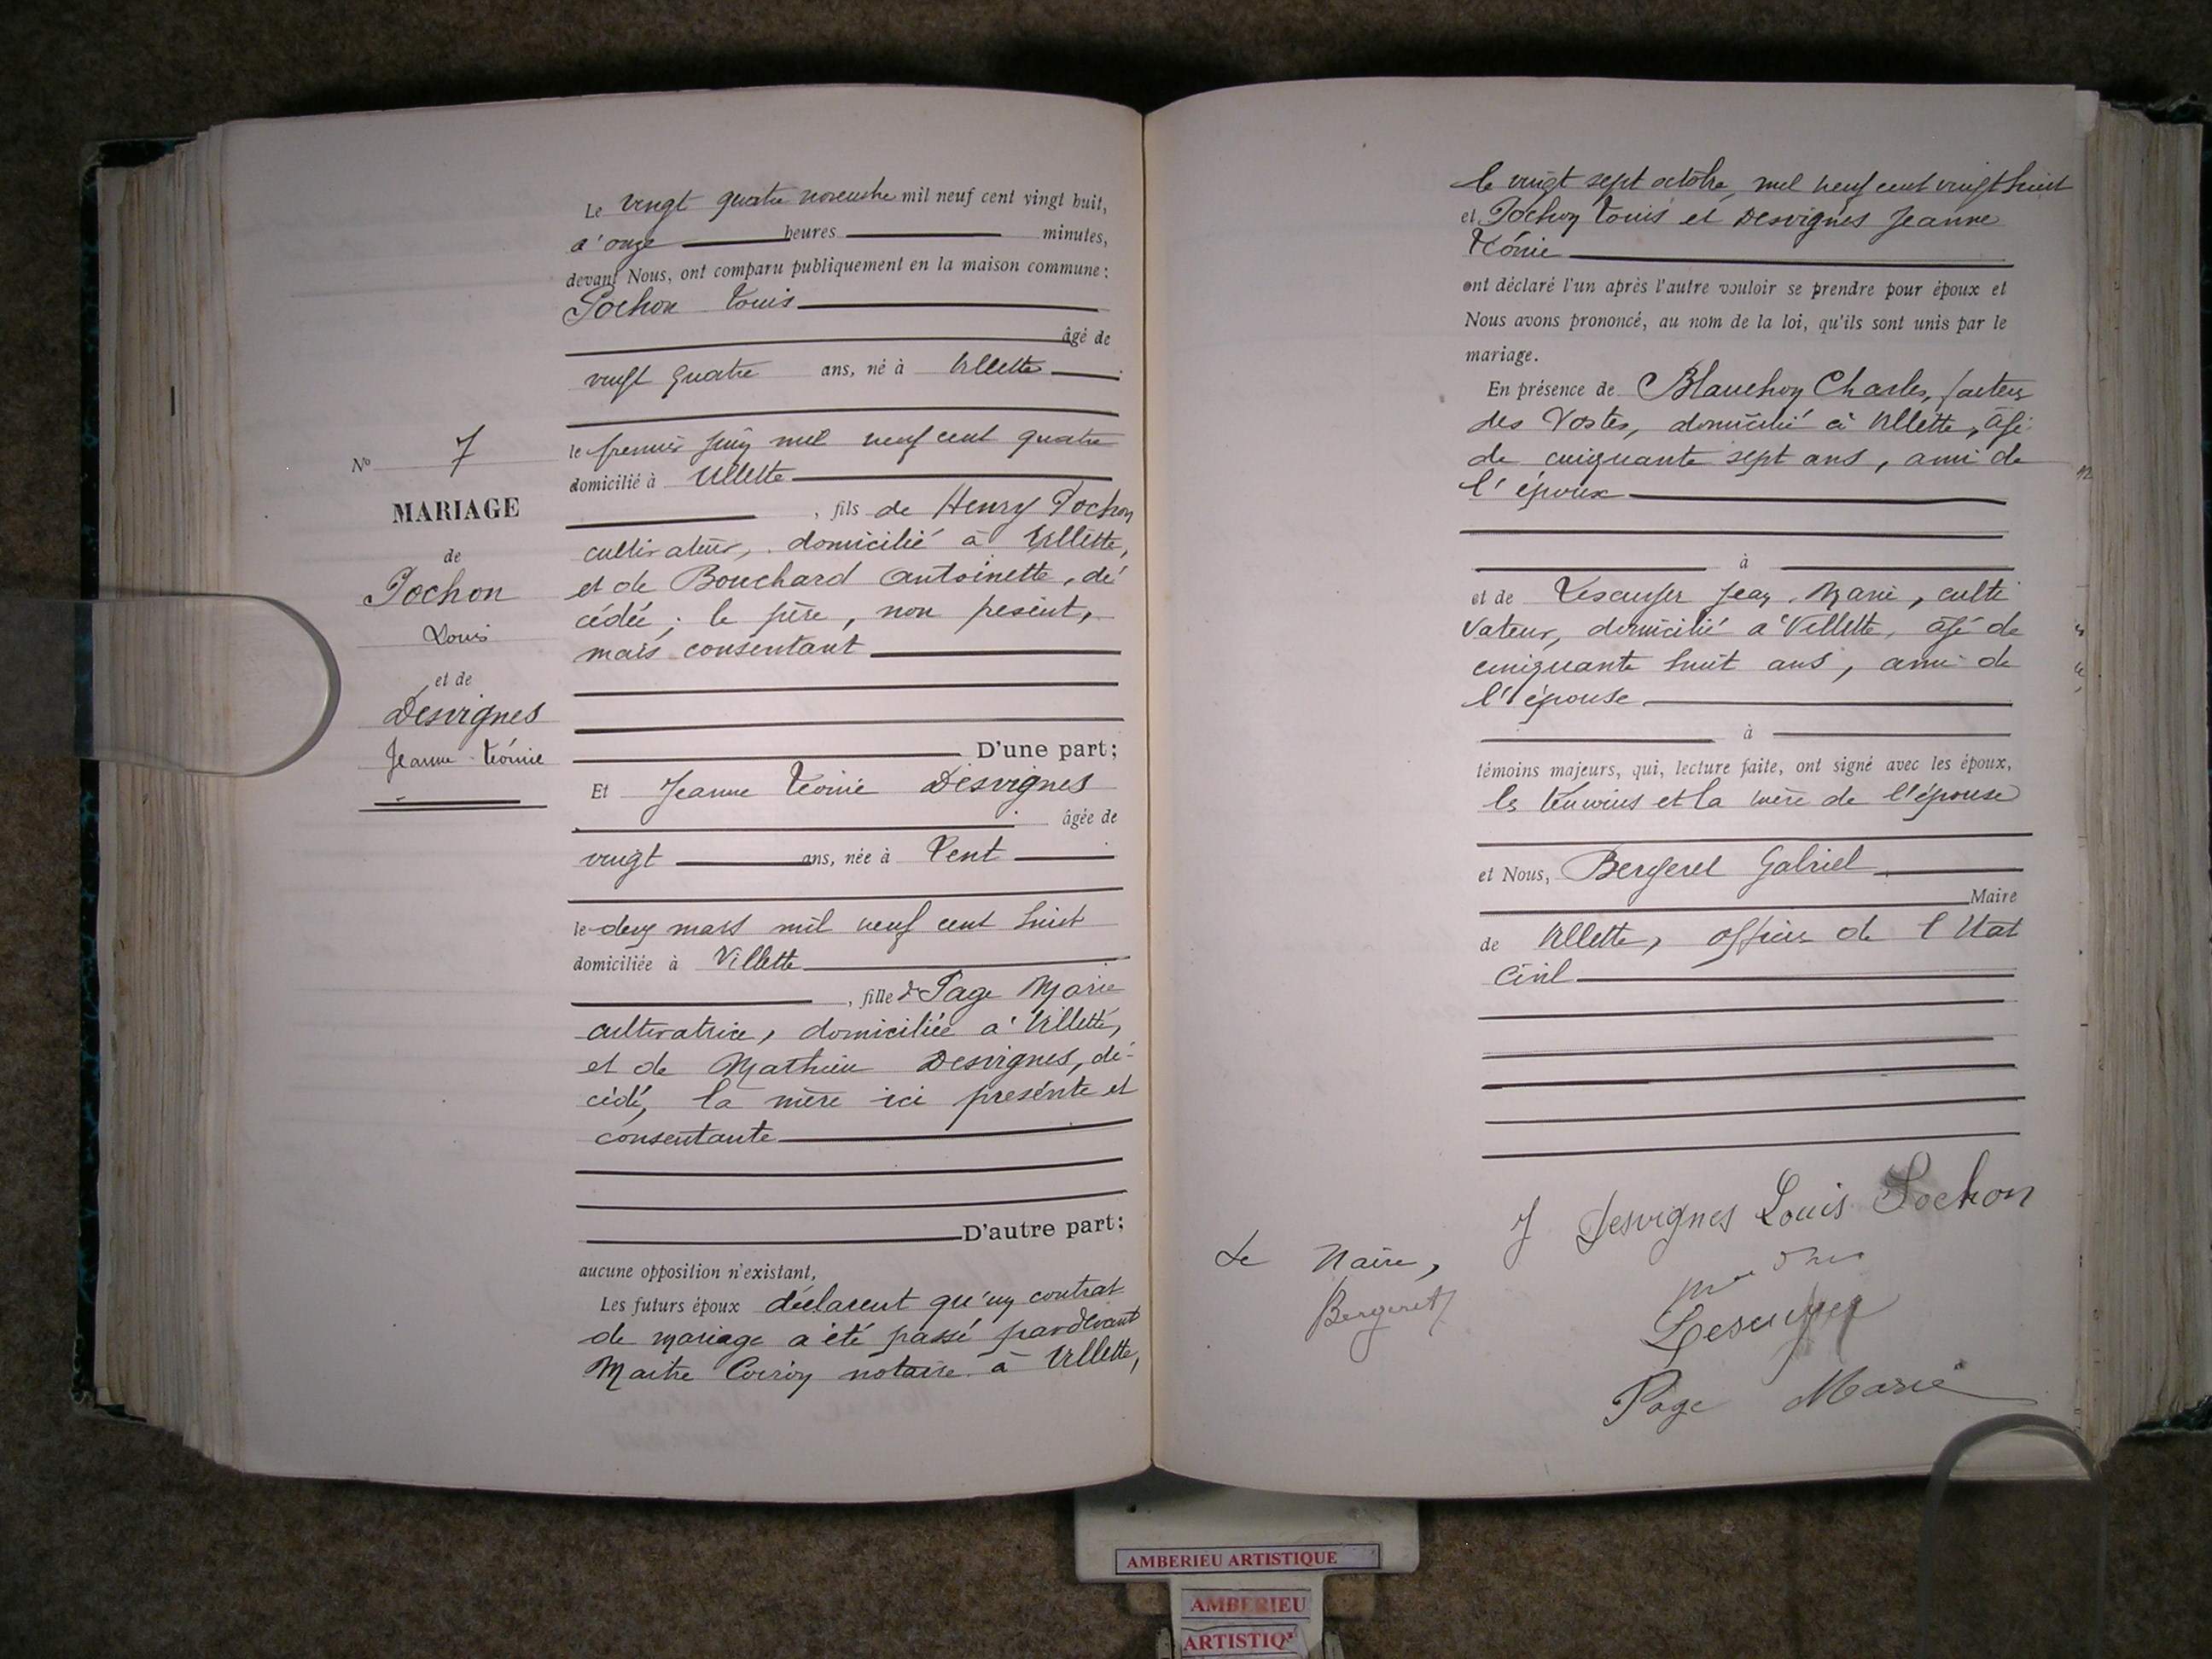 Le vingt quatre novembre mil neuf cent vingt huit,
à onze heures minutes,
devant Nous, ont comparu publiquement en la maison commune :
Pochon Louis
âgé de
vingt quatre ans, né à Villette
le premier juin mil neuf cent quatre
domicilié à Villette
, fils de Henry Pochon
cultivateur, domicilié à Villette,
et de Bouchard Antoinette, dé
cédée ; le père, non present,
mais consentant
D'une part;
Et Jeanne Léonie Desvignes
âgée de
vingt ans, née à Pont
le deux mars mil neuf cent huit
domiciliée à Villette
, fille de Page Marie
cultivatrice, domiciliée à Villette,
et de Mathieu Desvignes, dé-
cédé, la mère ici présente et
consentante
D'autre part;
aucune opposition n'existant,
Les futurs époux déclarent qu'un contrat
de mariage a été passé pardevant
Maitre notaire à Villette,
No 7
MARIAGE
de
Pochon
Louis
et de
Desvignes
Jeanne Léonie
le vingt sept octobre, mil neuf cent vingt huit
et Pochon Louis et Desvignes Jeanne
Léonie
ont déclaré l'un après l'autre vouloir se prendre pour époux et
Nous avons prononcé, au nom de la loi, qu'ils sont unis par le
mariage.
En présence de Blanchon Charles, facteur
des Postes, domicilié à Villette, âgé
de cinquante sept ans, ami de
l'époux
à
et de Lescuyer Jean Marie, culti
vateur, domicilié à Villette, âgé de
cinquante huit ans, ami de
l'épouse
à
témoins majeurs, qui, lecture faite, ont signé avec les époux,
les témoins et la mère de l'épouse
et Nous, Bergeret Gabriel
Maire
de Villette, officier de l'Etat
Civil
J Desvignes Louis Pochon
Le Maire,
Bergeret
Lescuyer
Page Marie
AMBERIEU ARTISTIQUE
AMBERIEU
ARTISTIQ